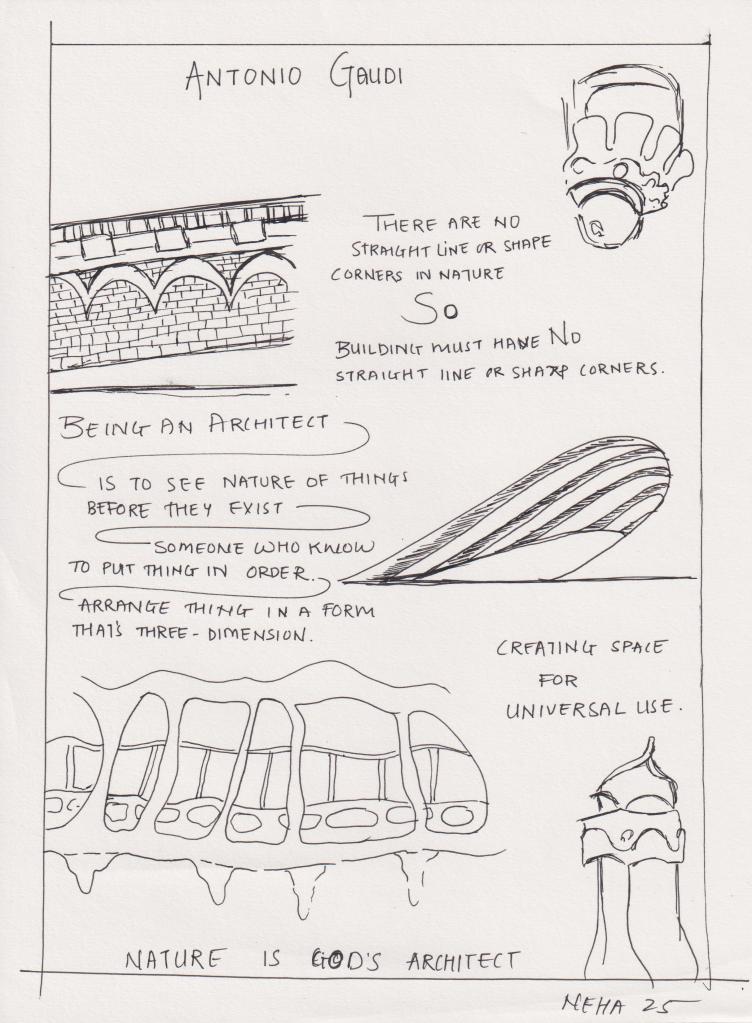 ANTONIO GAUDI
THERE ARE NO
STRAIGHT LINE OR SHAPE
CORNERS IN NATURE
SO
BUILDING MUST HAVE NO
STRAIGHT LINE OR SHARP CORNERS.
BEING AN ARCHITECT
IS TO SEE NATURE OF THINGS
BEFORE THEY EXIST
SOMEONE WHO KNOW
TO PUT THING IN ORDER.
ARRANGE THING IN A FORM
THAT'S THREE-DIMENSION.
CREATING SPACE
FOR
UNIVERSAL USE.
NATURE IS GOD'S ARCHITECT
NEHA 25